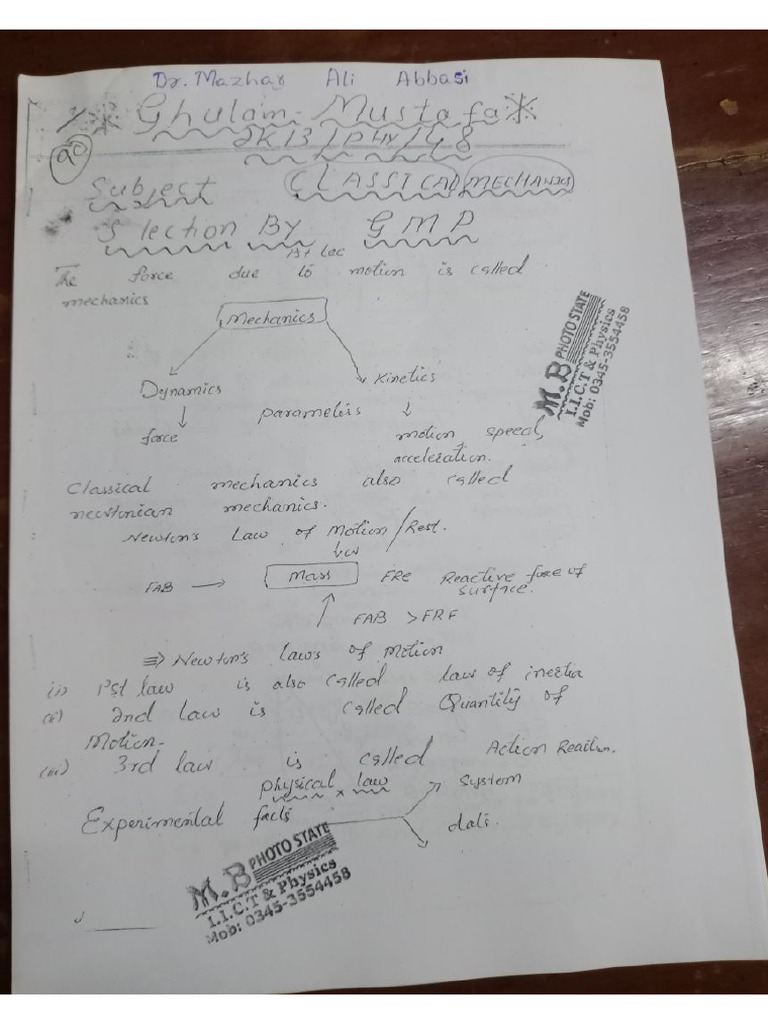 Dr. Mazhar Ali Abbasi
* Ghulam Mustafa *
2K13/Phy/48
90
Subject CLASSICAL MECHANICS
Selection By GMP
1st Lec
The force due to motion is called
mechanics
Mechanics
Dynamics Kinetics
parameters
force motion, speed,
acceleration.
Classical mechanics also called
newtonian mechanics.
Newton's Law of Motion/Rest.
↓w
FAB → Mass FRe Reactive force of
surface.
FAB > FRF
⇒ Newton's laws of Motion
(i) 1st law is also called law of inertia
(ii) 2nd law is called Quantity of
Motion.
(iii) 3rd law is called Action Reaction.
physical x law
System
Experimental facts
M.B PHOTO STATE
I.I.C.T & Physics
Mob: 0345-3554458
M.B PHOTO STATE
I.I.C.T & Physics
Mob: 0345-3554458